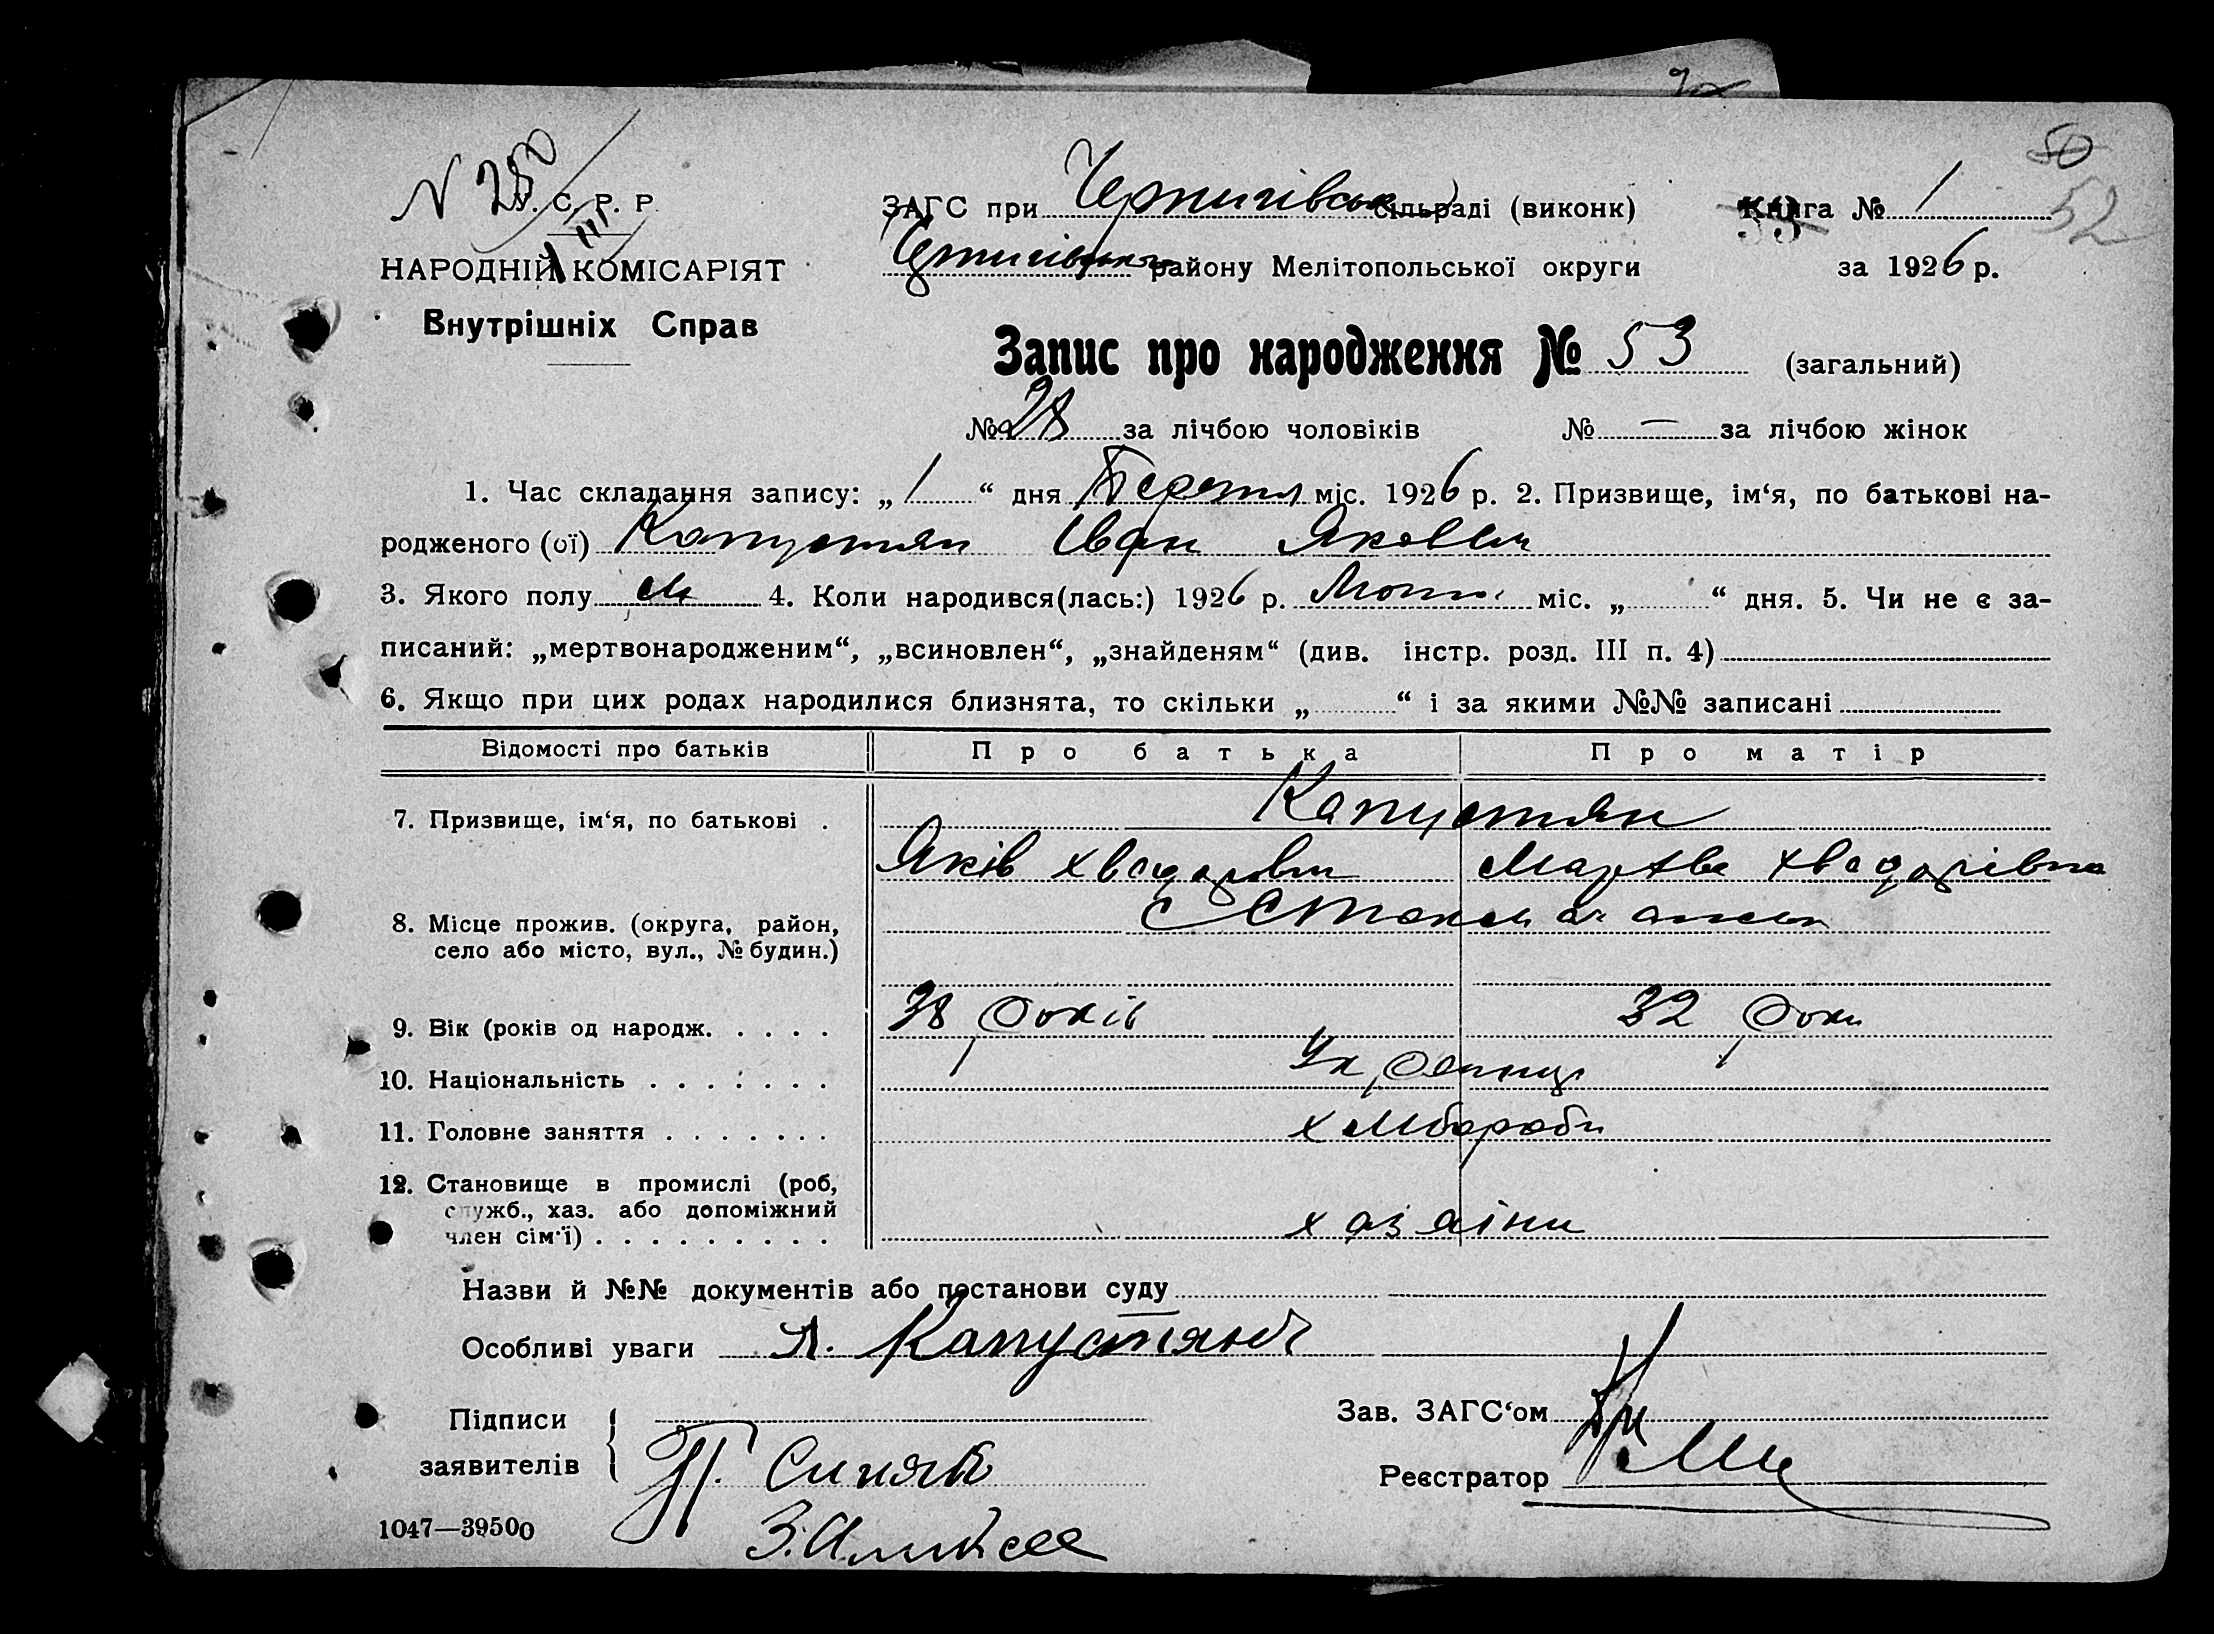 № 250
У. С. Р. Р.
НАРОДНІЙ КОМІСАРІЯТ
Внутрішніх Справ
50
52
ЗАГС при Чернигівськ сільраді (виконк) Книга № 1
Чернигівськ району Мелітопольської округи за 1926 р.
Запис про народження № 53 (загальний)
№ 28 за лічбою чоловіків № — за лічбою жінок
1. Час складання запису: „1“ дня міс. 1926 р. 2. Призвище, ім‘я, по батькові на-
родженого (ої) Капустян Іван Якович
3. Якого полу м 4. Коли народився(лась:) 1926 р. міс. „ “ дня. 5. Чи не є за-
писаний: „мертвонародженим“, „всиновлен“, „знайденям“ (див. інстр. розд. III п. 4)
6. Якщо при цих родах народилися близнята, то скільки „ “ і за якими №№ записані
Відомості про батьків Про батька Про матір
7. Призвище, ім‘я, по батькові . Капустян
Яків Хведорович Марфа Хведорівна
8. Місце прожив. (округа, район,
село або місто, вул., № будин.)
9. Вік (років од народж. . . . . 38 років 32 роки
10. Національність . . . . . . . Українці
11. Головне заняття . . . . . . . хлібороби
12. Становище в промислі (роб,
служб., хаз. або допоміжний
член сім‘ї) . . . . . . . . . хазяіни
Назви й №№ документів або постанови суду
Особливі уваги Я. Капустянъ
Підписи
заявителів П. Синяк
Зав. ЗАГС‘ом
Реєстратор
1047—39500